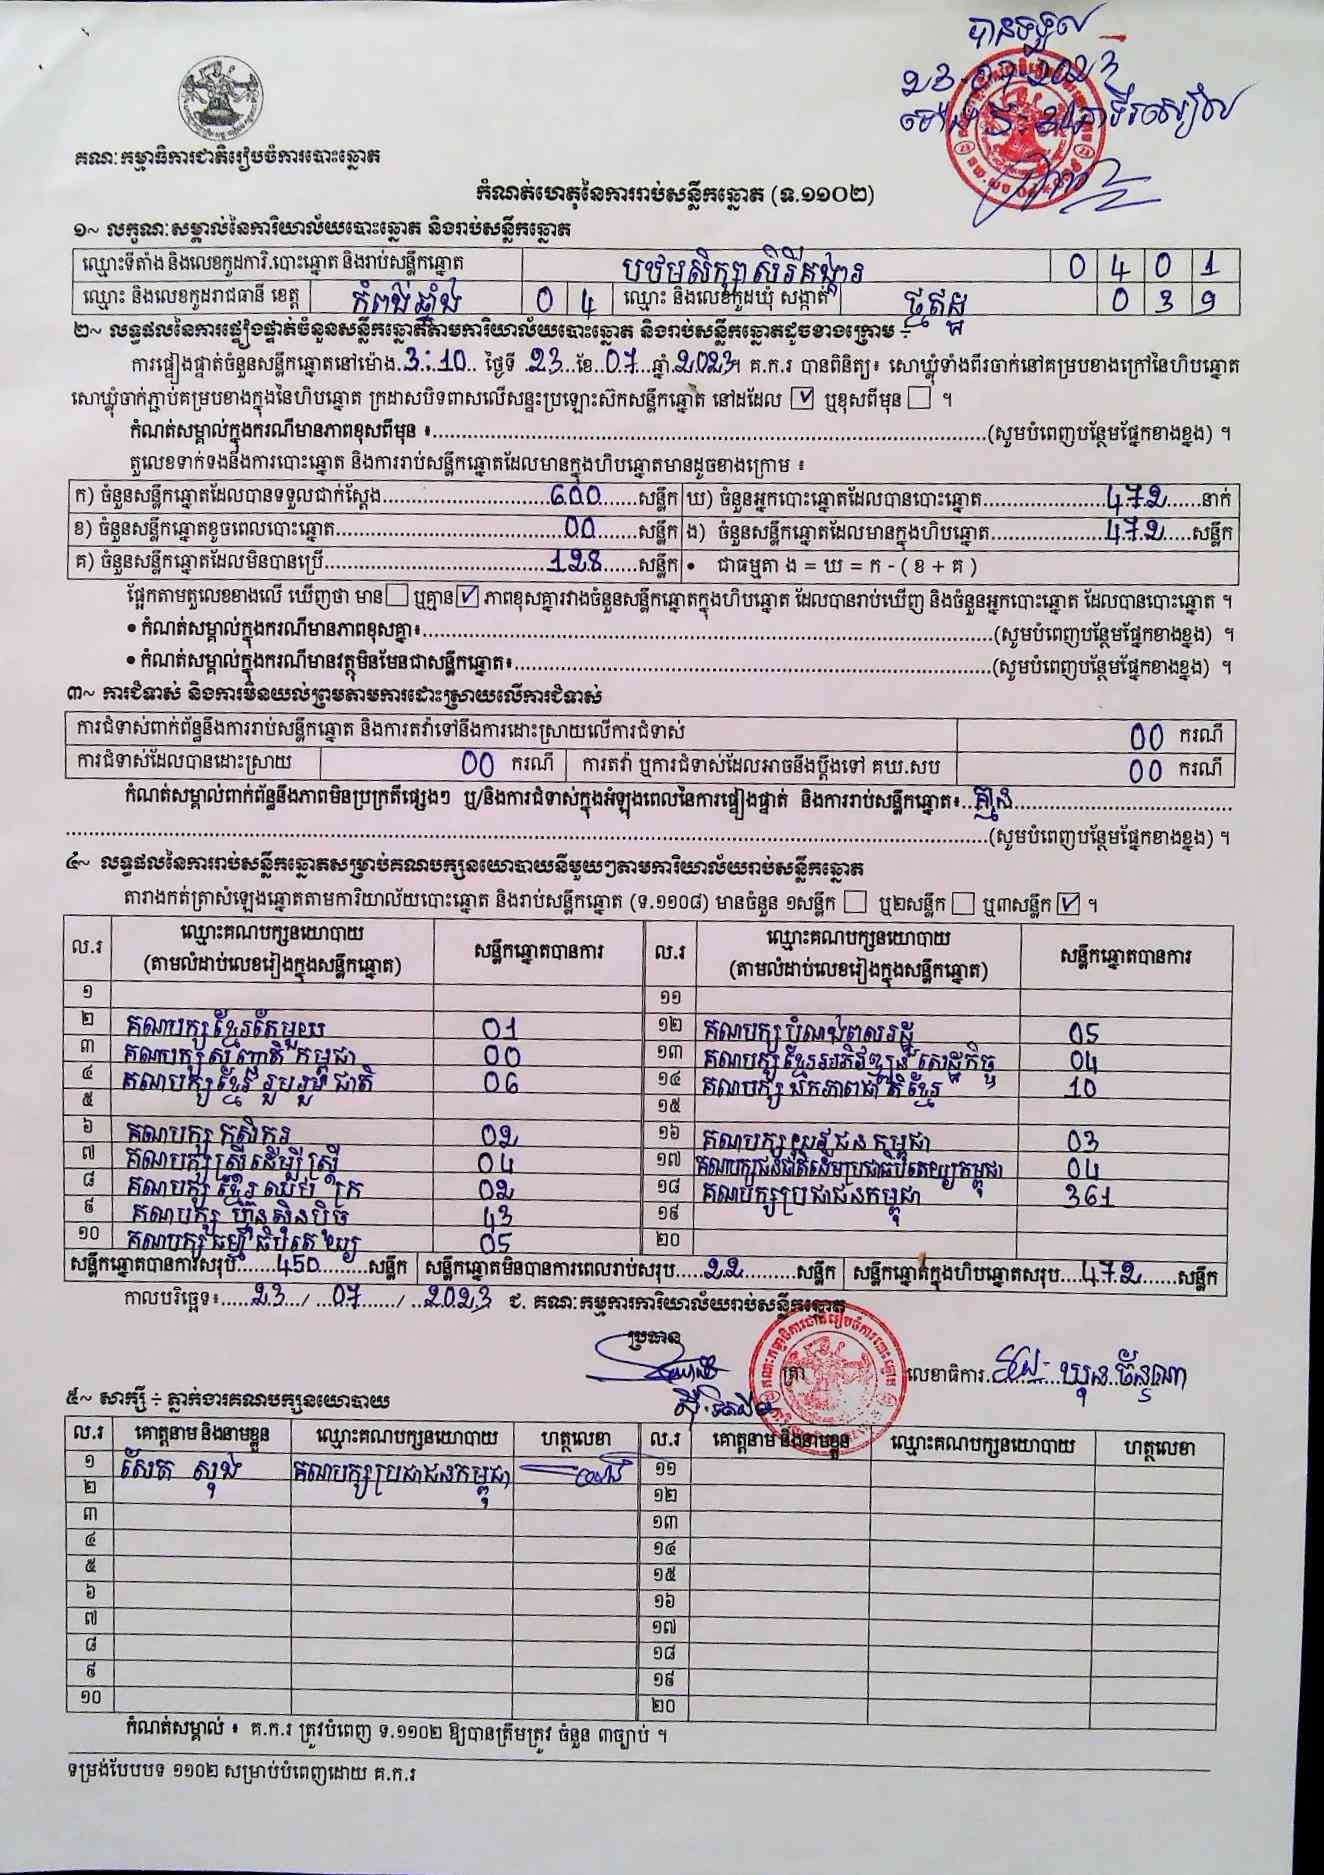 បានទទួល
គណៈកម្មាធិការជាតិរៀបចំការបោះឆ្នោត
កំណត់ហេតុនៃការរាប់សន្លឹកឆ្នោត (ទ.១១០២)
១~ លក្ខណៈសម្គាល់នៃការិយាល័យបោះឆ្នោត និងរាប់សន្លឹកឆ្នោត
ឈ្មោះទីតាំង និងលេខកូដការិ.បោះឆ្នោត និងរាប់សន្លឹកឆ្នោត បឋមសិក្សា 0 4 0 1
ឈ្មោះ និងលេខកូដរាជធានី ខេត្ត កំពង់ឆ្នាំង 0 4 ឈ្មោះ និងលេខកូដឃុំ សង្កាត់ 0 3 9
២~ លទ្ធផលនៃការផ្ទៀងផ្ទាត់ចំនួនសន្លឹកឆ្នោតតាមការិយាល័យបោះឆ្នោត និងរាប់សន្លឹកឆ្នោតដូចខាងក្រោម ÷
ការផ្ទៀងផ្ទាត់ចំនួនសន្លឹកឆ្នោតនៅម៉ោង 3:10 ថ្ងៃទី 23 ខែ 07 ឆ្នាំ 2023។ គ.ក.រ បានពិនិត្យ៖ សោឃ្លុំទាំងពីរចាក់នៅគម្របខាងក្រៅនៃហិបឆ្នោត
សោឃ្លុំចាក់ភ្ជាប់គម្របខាងក្នុងនៃហិបឆ្នោត ក្រដាសបិទពាសលើសន្ទះប្រឡោះស៊កសន្លឹកឆ្នោត នៅដដែល ☑ ឬខុសពីមុន ☐ ។
កំណត់សម្គាល់ក្នុងករណីមានភាពខុសពីមុន ៖..........(សូមបំពេញបន្ថែមផ្នែកខាងខ្នង) ។
តួលេខទាក់ទងនឹងការបោះឆ្នោត និងការរាប់សន្លឹកឆ្នោតដែលមានក្នុងហិបឆ្នោតមានដូចខាងក្រោម ៖
ក) ចំនួនសន្លឹកឆ្នោតដែលបានទទួលជាក់ស្តែង 600 សន្លឹក ឃ) ចំនួនអ្នកបោះឆ្នោតដែលបានបោះឆ្នោត 472 នាក់
ខ) ចំនួនសន្លឹកឆ្នោតខូចពេលបោះឆ្នោត 00 សន្លឹក ង) ចំនួនសន្លឹកឆ្នោតដែលមានក្នុងហិបឆ្នោត 472 សន្លឹក
គ) ចំនួនសន្លឹកឆ្នោតដែលមិនបានប្រើ 128 សន្លឹក • ជាធម្មតា ង = ឃ = ក - ( ខ + គ )
ផ្អែកតាមតួលេខខាងលើ ឃើញថា មាន ☐ ឬគ្មាន ☑ ភាពខុសគ្នារវាងចំនួនសន្លឹកឆ្នោតក្នុងហិបឆ្នោត ដែលបានរាប់ឃើញ និងចំនួនអ្នកបោះឆ្នោត ដែលបានបោះឆ្នោត ។
• កំណត់សម្គាល់ក្នុងករណីមានភាពខុសគ្នា៖..........(សូមបំពេញបន្ថែមផ្នែកខាងខ្នង) ។
• កំណត់សម្គាល់ក្នុងករណីមានវត្ថុមិនមែនជាសន្លឹកឆ្នោត៖..........(សូមបំពេញបន្ថែមផ្នែកខាងខ្នង) ។
៣~ ការជំទាស់ និងការមិនយល់ព្រមតាមការដោះស្រាយលើការជំទាស់
ការជំទាស់ពាក់ព័ន្ធនឹងការរាប់សន្លឹកឆ្នោត និងការតវ៉ាទៅនឹងការដោះស្រាយលើការជំទាស់ 00 ករណី
ការជំទាស់ដែលបានដោះស្រាយ 00 ករណី ការតវ៉ា ឬការជំទាស់ដែលអាចនឹងប្តឹងទៅ គឃ.សប 00 ករណី
កំណត់សម្គាល់ពាក់ព័ន្ធនឹងភាពមិនប្រក្រតីផ្សេងៗ ឬ/និងការជំទាស់ក្នុងអំឡុងពេលនៃការផ្ទៀងផ្ទាត់ និងការរាប់សន្លឹកឆ្នោត៖ គ្មាន
..........(សូមបំពេញបន្ថែមផ្នែកខាងខ្នង) ។
៤~ លទ្ធផលនៃការរាប់សន្លឹកឆ្នោតសម្រាប់គណបក្សនយោបាយនីមួយៗតាមការិយាល័យរាប់សន្លឹកឆ្នោត
តារាងកត់ត្រាសំឡេងឆ្នោតតាមការិយាល័យបោះឆ្នោត និងរាប់សន្លឹកឆ្នោត (ទ.១១០៨) មានចំនួន ១សន្លឹក ☐ ឬ២សន្លឹក ☐ ឬ៣សន្លឹក ☑ ។
ល.រ ឈ្មោះគណបក្សនយោបាយ (តាមលំដាប់លេខរៀងក្នុងសន្លឹកឆ្នោត) សន្លឹកឆ្នោតបានការ ល.រ ឈ្មោះគណបក្សនយោបាយ (តាមលំដាប់លេខរៀងក្នុងសន្លឹកឆ្នោត) សន្លឹកឆ្នោតបានការ
១ ១១
២ គណបក្សខ្មែរតែមួយ 01 ១២ គណបក្សបំណងពលរដ្ឋ 05
៣ គណបក្សសញ្ជាតិកម្ពុជា 00 ១៣ គណបក្សខ្មែរអភិវឌ្ឍន៍សេដ្ឋកិច្ច 04
៤ គណបក្សខ្មែររួបរួមជាតិ 06 ១៤ គណបក្សឯកភាពជាតិខ្មែរ 10
៥ ១៥
៦ គណបក្សកសិករ 02 ១៦ គណបក្សយុវជនកម្ពុជា 03
៧ គណបក្សស្ត្រីដើម្បីស្ត្រី 04 ១៧ គណបក្សជនជាតិដើមប្រជាធិបតេយ្យកម្ពុជា 04
៨ គណបក្សខ្មែរឈប់ក្រ 02 ១៨ គណបក្សប្រជាជនកម្ពុជា 361
៩ គណបក្សហ៊្វុនស៊ិនប៉ិច 43 ១៩
១០ គណបក្សធម្មាធិបតេយ្យ 05 ២០
សន្លឹកឆ្នោតបានការសរុប 450 សន្លឹក សន្លឹកឆ្នោតមិនបានការពេលរាប់សរុប 22 សន្លឹក សន្លឹកឆ្នោតក្នុងហិបឆ្នោតសរុប 472 សន្លឹក
កាលបរិច្ឆេទ៖ 23 / 07 / 2023 ជ. គណៈកម្មការការិយាល័យរាប់សន្លឹកឆ្នោត
ប្រធាន ត្រា លេខាធិការ ឃុន ច័ន្ទណា
៥~ សាក្សី ÷ ភ្នាក់ងារគណបក្សនយោបាយ
ល.រ គោត្តនាម និងនាមខ្លួន ឈ្មោះគណបក្សនយោបាយ ហត្ថលេខា ល.រ គោត្តនាម និងនាមខ្លួន ឈ្មោះគណបក្សនយោបាយ ហត្ថលេខា
១ សែត សុង គណបក្សប្រជាជនកម្ពុជា ១១
២ ១២
៣ ១៣
៤ ១៤
៥ ១៥
៦ ១៦
៧ ១៧
៨ ១៨
៩ ១៩
១០ ២០
កំណត់សម្គាល់ ៖ គ.ក.រ ត្រូវបំពេញ ទ.១១០២ ឱ្យបានត្រឹមត្រូវ ចំនួន ៣ច្បាប់ ។
ទម្រង់បែបបទ ១១០២ សម្រាប់បំពេញដោយ គ.ក.រ